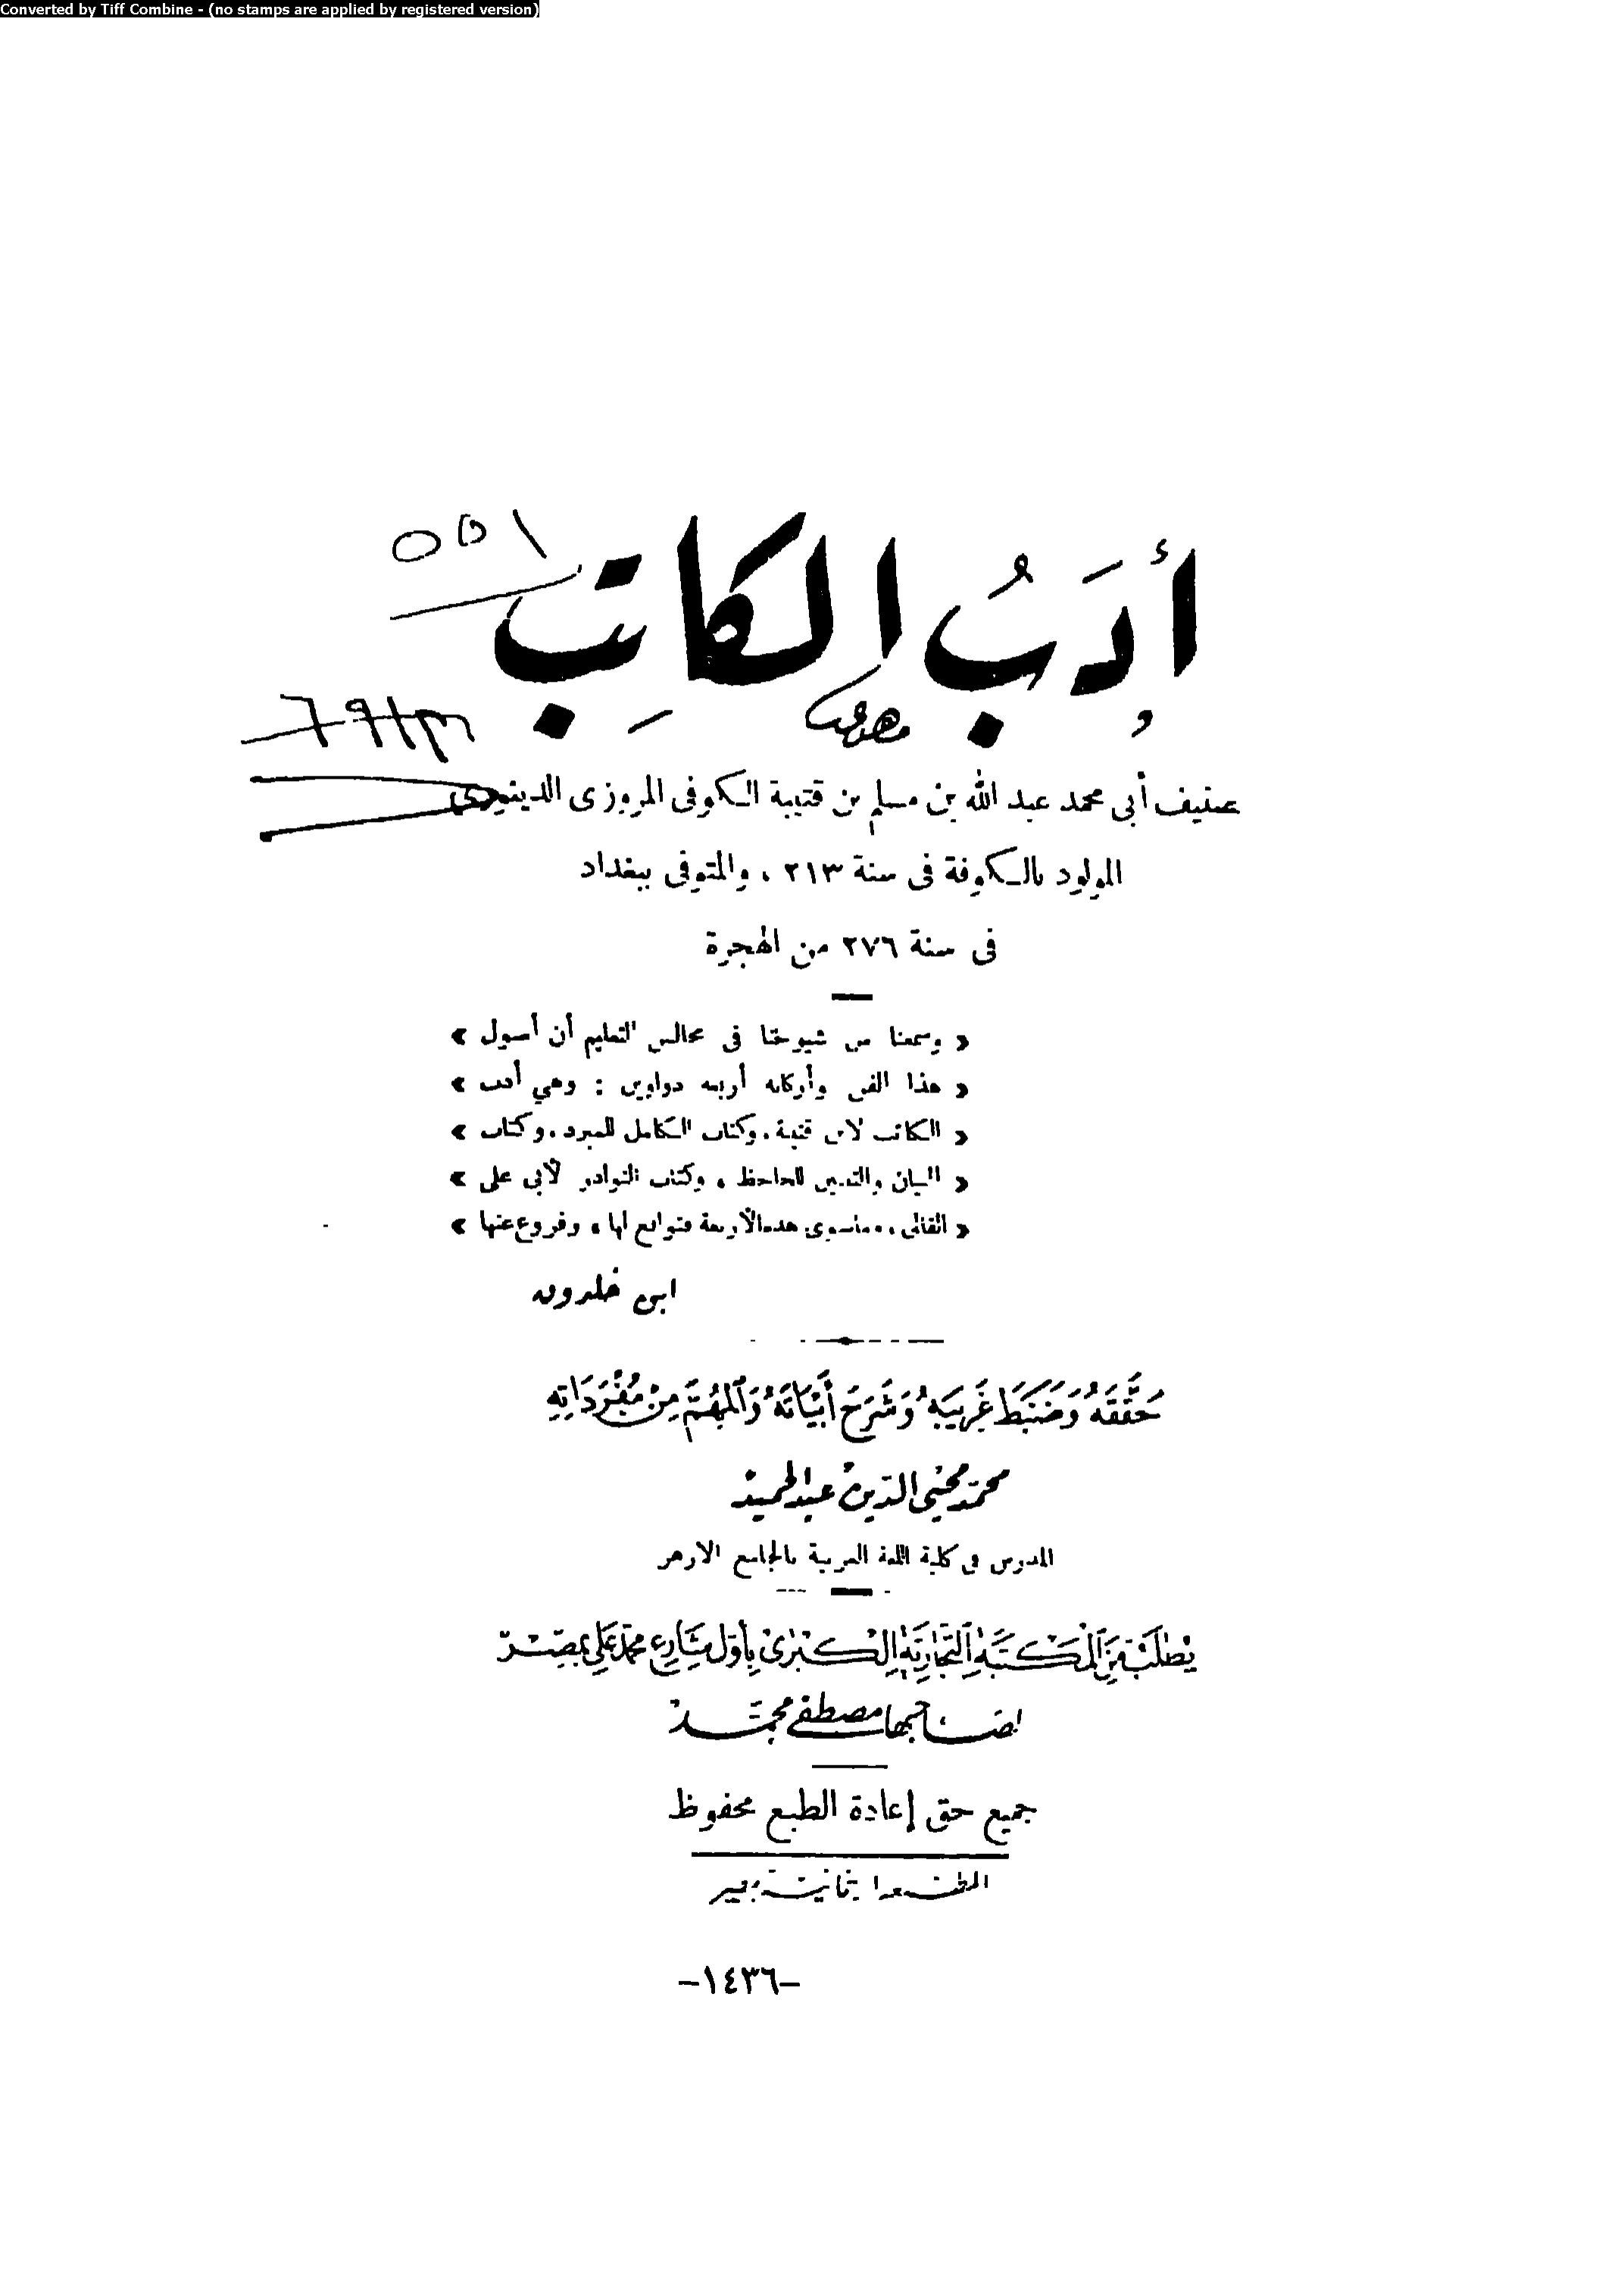 Converted by Tiff Combine - (no stamps are applied by registered version)
٥٥١
أدَبُ الكاتِب
٦٩١٣
تصنيف أبى محمد عبد الله بن مسلم بن قتيبة الكوفى المروزى الدينورى
المولود بالكوفة فى سنة ٢١٣ ، والمتوفى ببغداد
فى سنة ٢٧٦ من الهجرة
« وسمعنا من شيوخنا فى مجالس التعليم أن أصول »
« هذا الفن وأركانه أربعة دواوين : وهي أدب »
« الكاتب لابن قتيبة ، وكتاب الكامل للمبرد ، وكتاب »
« البيان والتبيين للجاحظ ، وكتاب النوادر لأبى على »
« القالى ، وما سوى هذه الأربعة فتوابع لها ، وفروع عنها »
ابن خلدون
حَقَّقَهُ وَضَبَطَ غَرِيبَهُ وَشَرَحَ أَبْيَاتَهُ وَالْمُهِمَّ مِنْ مُفْرَدَاتِهِ
محمّد محيى الدّين عبد الحميد
المدرس فى كلية اللغة العربية بالجامع الازهر
يُطلَبُ مِنَ الْمَكتَبَةِ التِّجَارِيَّةِ الكُبْرَى بِأوّل شَارِع محمّد عَلى بمِصْر
لصَاحبها مصطفى محمّد
جميع حق إعادة الطبع محفوظ
–١٤٣٦–